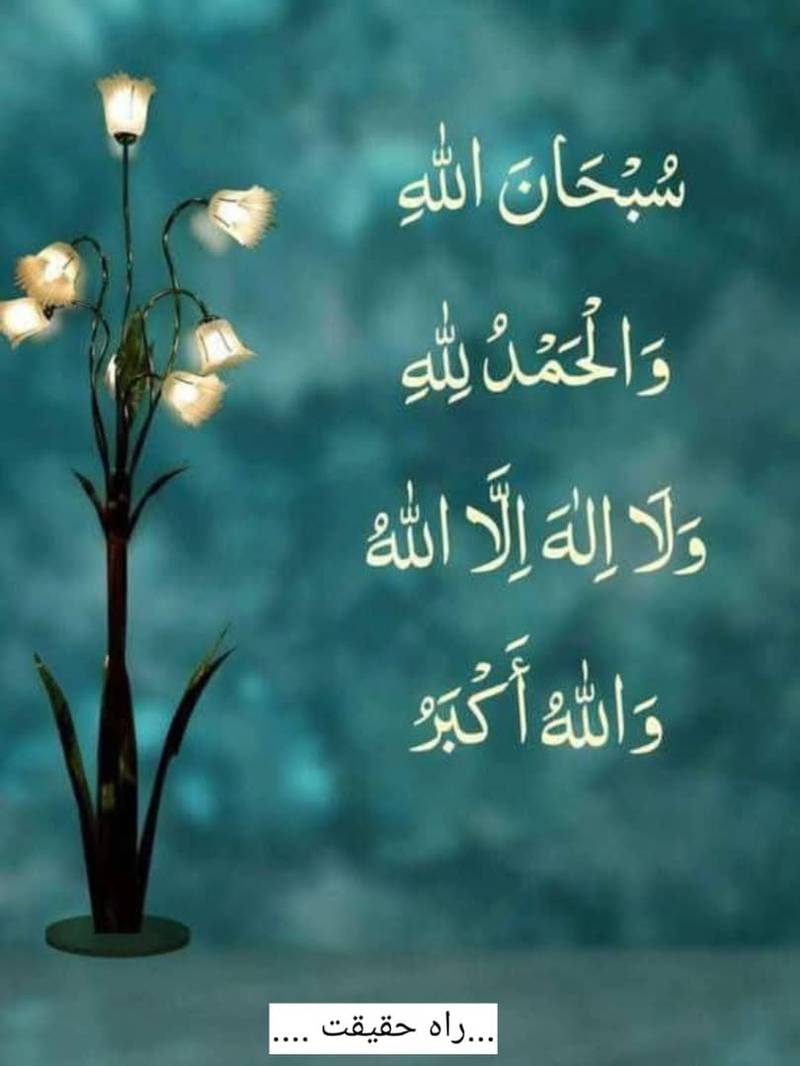 سُبْحَانَ اللّٰهِ
وَالْحَمْدُ لِلّٰهِ
وَلَا اِلٰهَ اِلَّا اللّٰهُ
وَاللّٰهُ أَكْبَرُ
...راه حقیقت ....